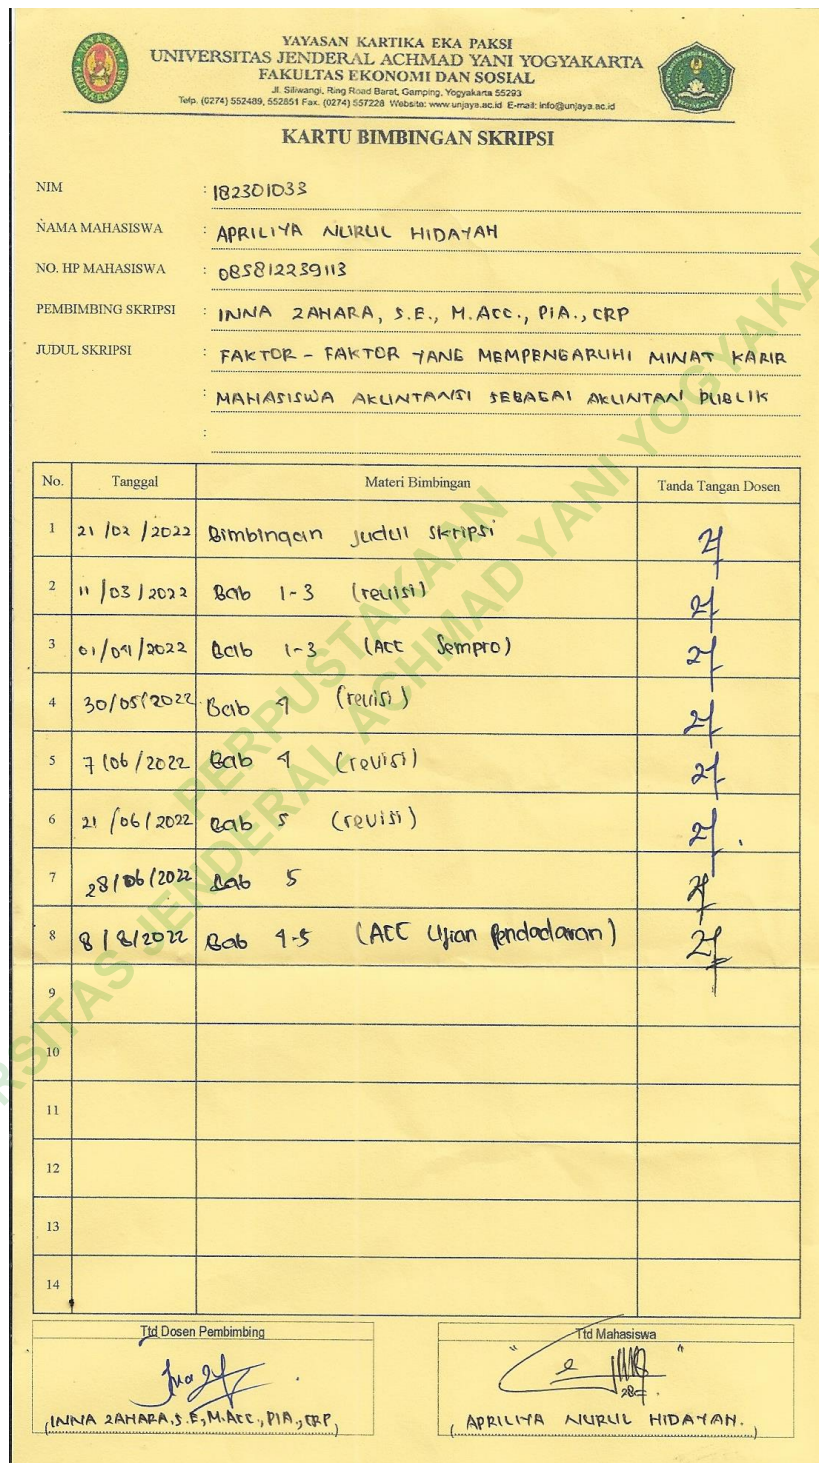 YAYASAN KARTIKA EKA PAKSI
UNIVERSITAS JENDERAL ACHMAD YANI YOGYAKARTA
FAKULTAS EKONOMI DAN SOSIAL
Jl. Siliwangi, Ring Road Barat, Gamping, Yogyakarta 55293
Telp. (0274) 552489, 552851 Fax. (0274) 557228 Website: www.unjaya.ac.id E-mail: info@unjaya.ac.id
KARTU BIMBINGAN SKRIPSI
NIM : 182301033
NAMA MAHASISWA : APRILIYA NURUL HIDAYAH
NO. HP MAHASISWA : 085812239113
PEMBIMBING SKRIPSI : INNA ZAHARA, S.E., M.ACC., PIA., CRP
JUDUL SKRIPSI : FAKTOR - FAKTOR YANG MEMPENGARUHI MINAT KARIR
: MAHASISWA AKUNTANSI SEBAGAI AKUNTAN PUBLIK
:
No. Tanggal Materi Bimbingan Tanda Tangan Dosen
1 21/02/2022 Bimbingan judul skripsi
2 11/03/2022 Bab 1-3 (revisi)
3 01/04/2022 Bab 1-3 (ACC Sempro)
4 30/05/2022 Bab 4 (revisi)
5 7/06/2022 Bab 4 (revisi)
6 21/06/2022 Bab 5 (revisi)
7 28/06/2022 Bab 5
8 8/8/2022 Bab 4-5 (ACC Ujian Pendadaran)
9
10
11
12
13
14
Ttd Dosen Pembimbing Ttd Mahasiswa
(INNA ZAHARA, S.E, M.ACC., PIA., CRP) (APRILIYA NURUL HIDAYAH.)
PERPUSTAKAAN
UNIVERSITAS JENDERAL ACHMAD YANI YOGYAKARTA